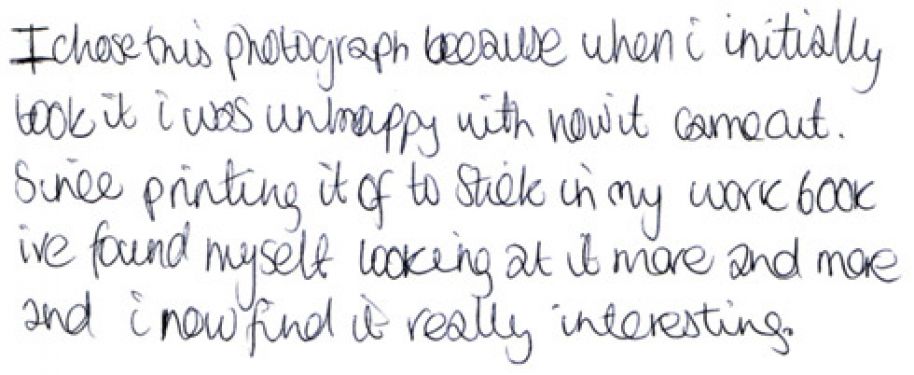 I chose this photograph because when i initially
took it i was unhappy with how it came out.
Since printing it of to stick in my work book
ive found myself looking at it more and more
and i now find it really interesting.